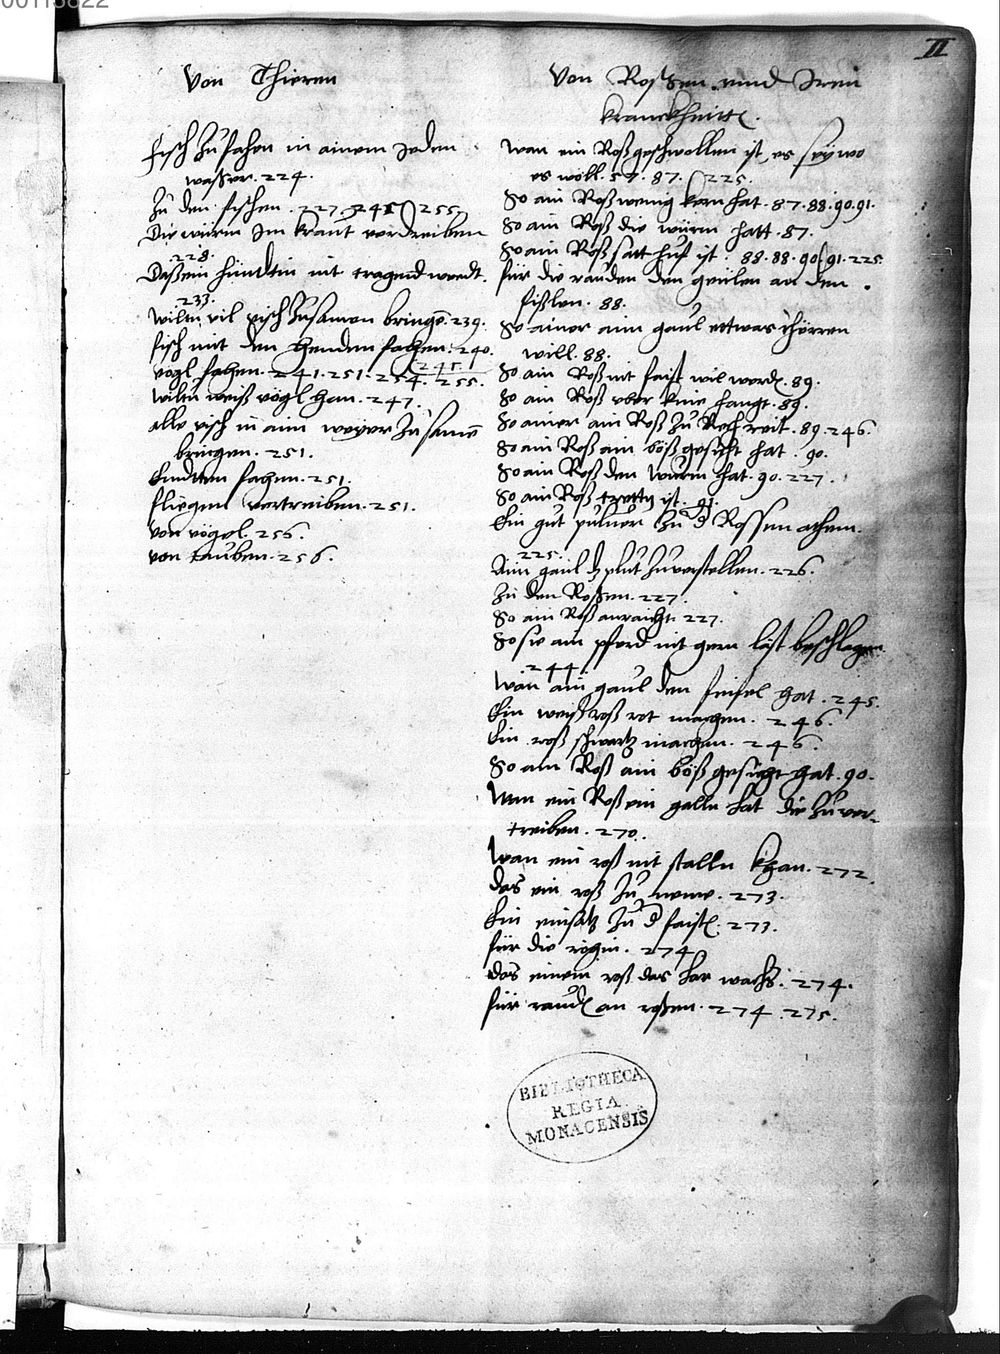 00113822
II
Von Thieren
fisch zu fahen in ainem jeden
wasser. 224.
Zu den fischen. 227. 245. 255.
Die würm im kraut vertreiben
228.
Das ein hündtin nit tragend werdt.
233.
Wiltu vil visch zusamen bringe. 239.
fisch mit den henden fahen. 240.
vögl fahen. 241. 251. 254. 255.
245.
Wiltu weiß vögl han. 247.
alle visch in aim weyer zusame
bringen. 251.
Endten fahen. 251.
fliegen vertreiben. 251.
von vögel. 256.
von tauben. 256.
Von Roßsen vnnd Iren
kranckheitt
Wan ein Roß geschwollen ist, es sey wo
es wöll. 57. 87. 225.
So ain Roß wenig kern hat. 87. 88. 90. 91.
So ain Roß die würm hatt. 87.
So ain Roß satt huf ist. 88. 88. 90. 91. 225
für die rauden den geulen an den
fißlen. 88.
So ainer aim gaul ettwas
will. 88.
So ain Roß nit faist wil werd. 89.
So ain Roß vber hangt. 89.
So ainer ain Roß zu Rech reit. 89. 246.
So ain Roß ain böß gesicht hat. 90.
So ain Roß den wurm hat. 90. 227.
So ain Roß ist. 91.
Ein gut puluer zu d Rossen athem.
225.
Aim gaul dz plut zuuerstellen. 226.
Zu den Roßen. 227.
So ain Roß anraicht. 227.
So sie ain pferd nit gern läst beschlagen
244.
Wan ain gaul den feifel hat. 245.
Ein weiß roß rot machen. 246.
Ein roß schwartz machen. 246.
So ain Roß ain böß gesicht hat. 90.
Wen ein Roß ein galln hat die zu ver-
treiben. 270.
Wan ein roß nit stalln khan. 272.
das ein roß zu neme. 273.
Ein einsatz zu d faist. 273.
für die rögin. 274
das einem roß das har wachß. 274.
für raud an roßen. 274. 275.
BIBLIOTHECA
REGIA
MONACENSIS